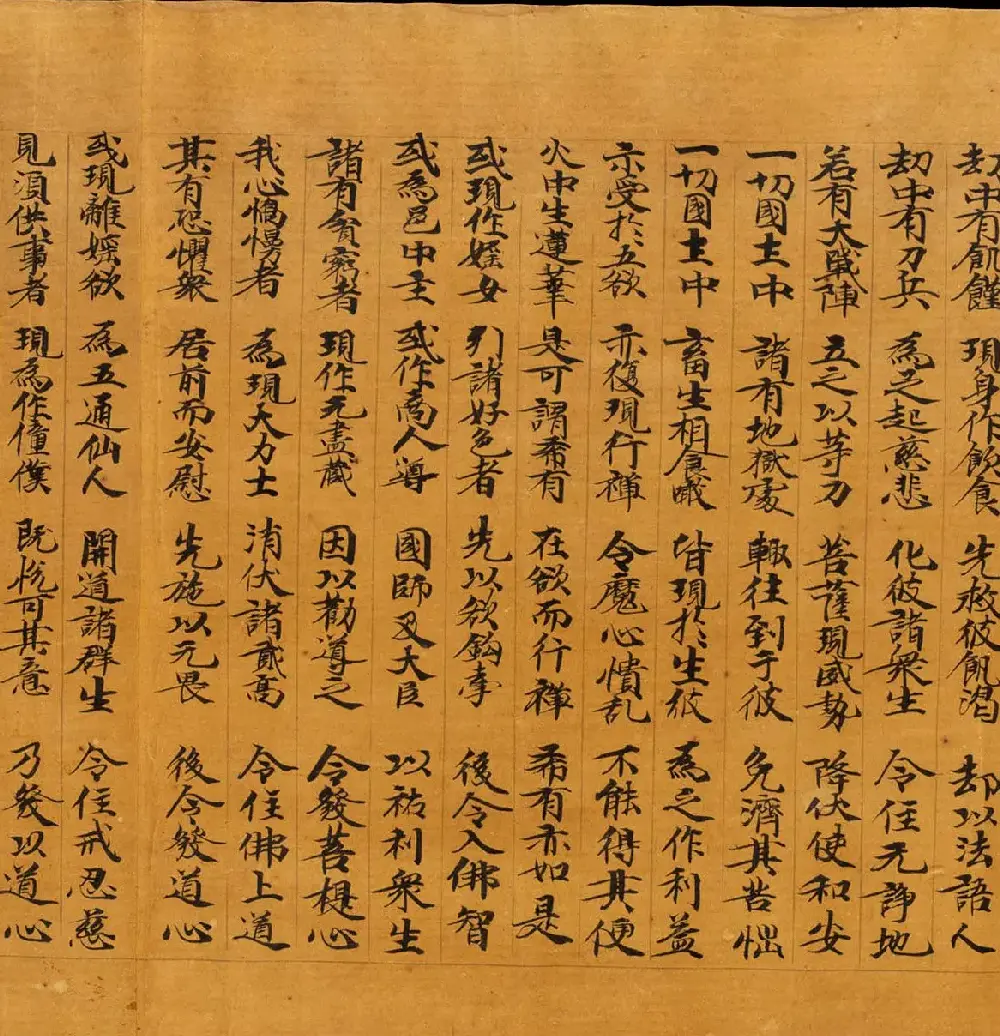 劫中有飢饉 現身作飲食 先救彼飢渴 却以法語人
劫中有刀兵 為之起慈悲 化彼諸衆生 令住无諍地
若有大戰陣 立之以等力 菩薩現威勢 降伏使和安
一切國土中 諸有地獄處 輙往到于彼 免濟其苦惱
一切國土中 畜生相食噉 皆現於生彼 為之作利益
示受於五欲 亦復現行禪 令魔心憒乱 不能得其便
火中生蓮華 是可謂希有 在欲而行禪 希有亦如是
或現作婬女 引諸好色者 先以欲鈎牽 後令入佛智
或為邑中主 或作商人導 國師及大臣 以祐利衆生
諸有貧窮者 現作无盡藏 因以勸導之 令發菩提心
我心憍慢者 為現大力士 消伏諸貢高 令住佛上道
其有恐懼衆 居前而安慰 先施以无畏 後令發道心
或現離婬欲 為五通仙人 開道諸群生 令住戒忍慈
見須供事者 現為作僮僕 既悅可其意 乃發以道心